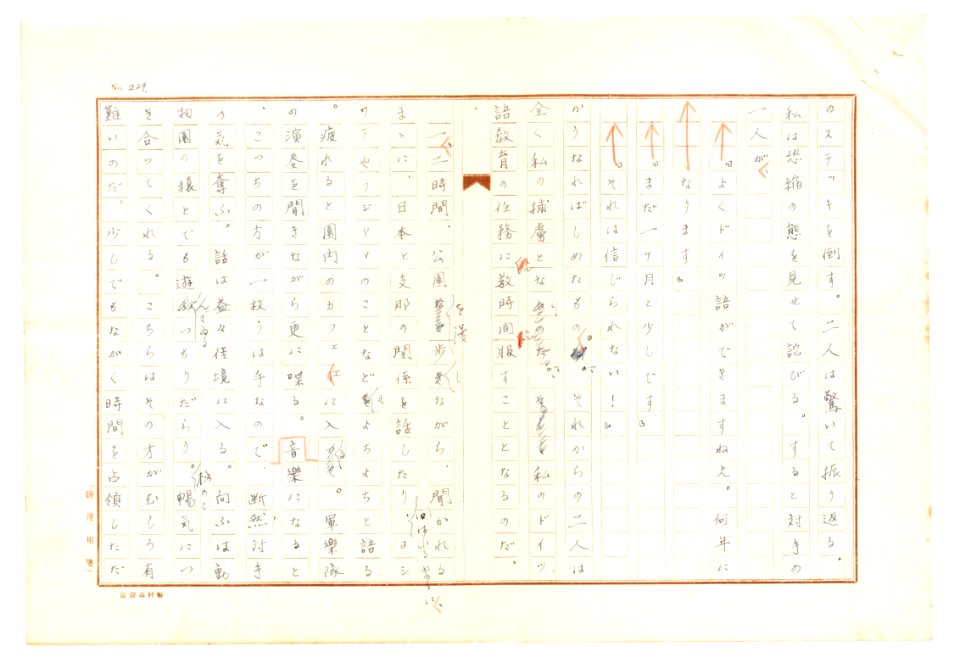 No. 229
のステッキを倒す。二人は驚いて振り返る。
私は恐縮の態を見せて詫びる。すると対手の
一人が
「よくドイツ語ができますねえ。何年に
なります」
「まだ一ヶ月と少しです」
「それは信じられない!」
かうなればしめたもの。それからの二人は
全く私の捕虜となり、私のドイツ
語教育の任務に数時間服すこととなるのだ。
一、二時間、公園を漫歩しながら、聞かれる
まゝに、日本と支那の関係を話したり、ヨシ
ワラやフジヤマのことなどをちよちと語る
。疲れると園内のカフェに入る。軍樂隊
の演奏を聞きながら更に喋る。音樂になると
、こつちの方が一枚うは手なので、断然、対手
の気を奪ふ。話は益々佳境に入る。向ふは動
物園の猿とでも遊んでゐるつもりだらう。極めて暢気につ
き合つてくれる。こちらはその方がむしろ有
難いのだ。少しでもながく時間を占領しただ